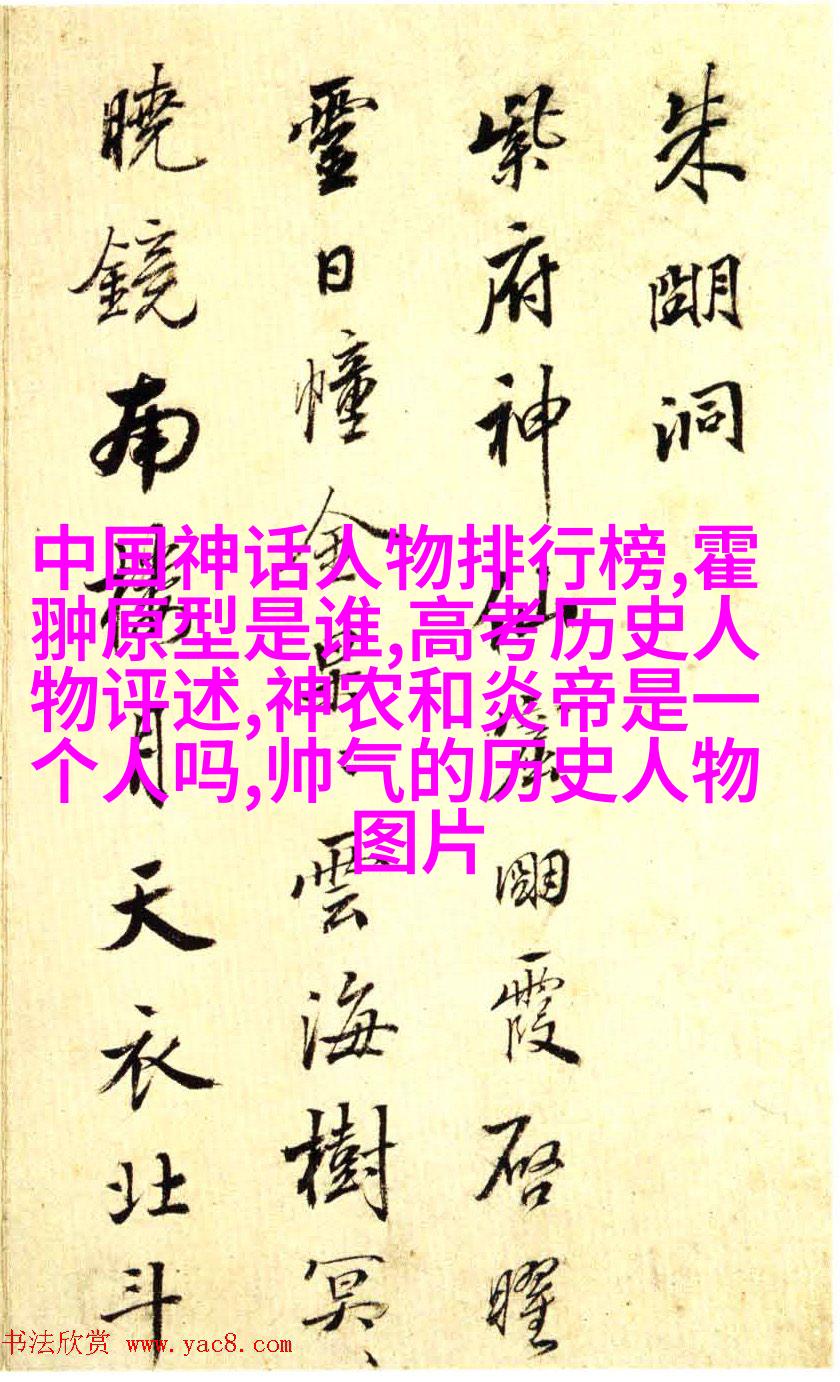 朱朙洞
紫府神仙 朙霞启曜
靈日幢金 雲海樹冥〻
曉鏡南 月天衣北斗
中国神话人物排行榜,霍
翀原型是谁,高考历史人
物评述,神农和炎帝是一
个人吗,帅气的历史人物
图片
书法欣赏 www.yac8.com